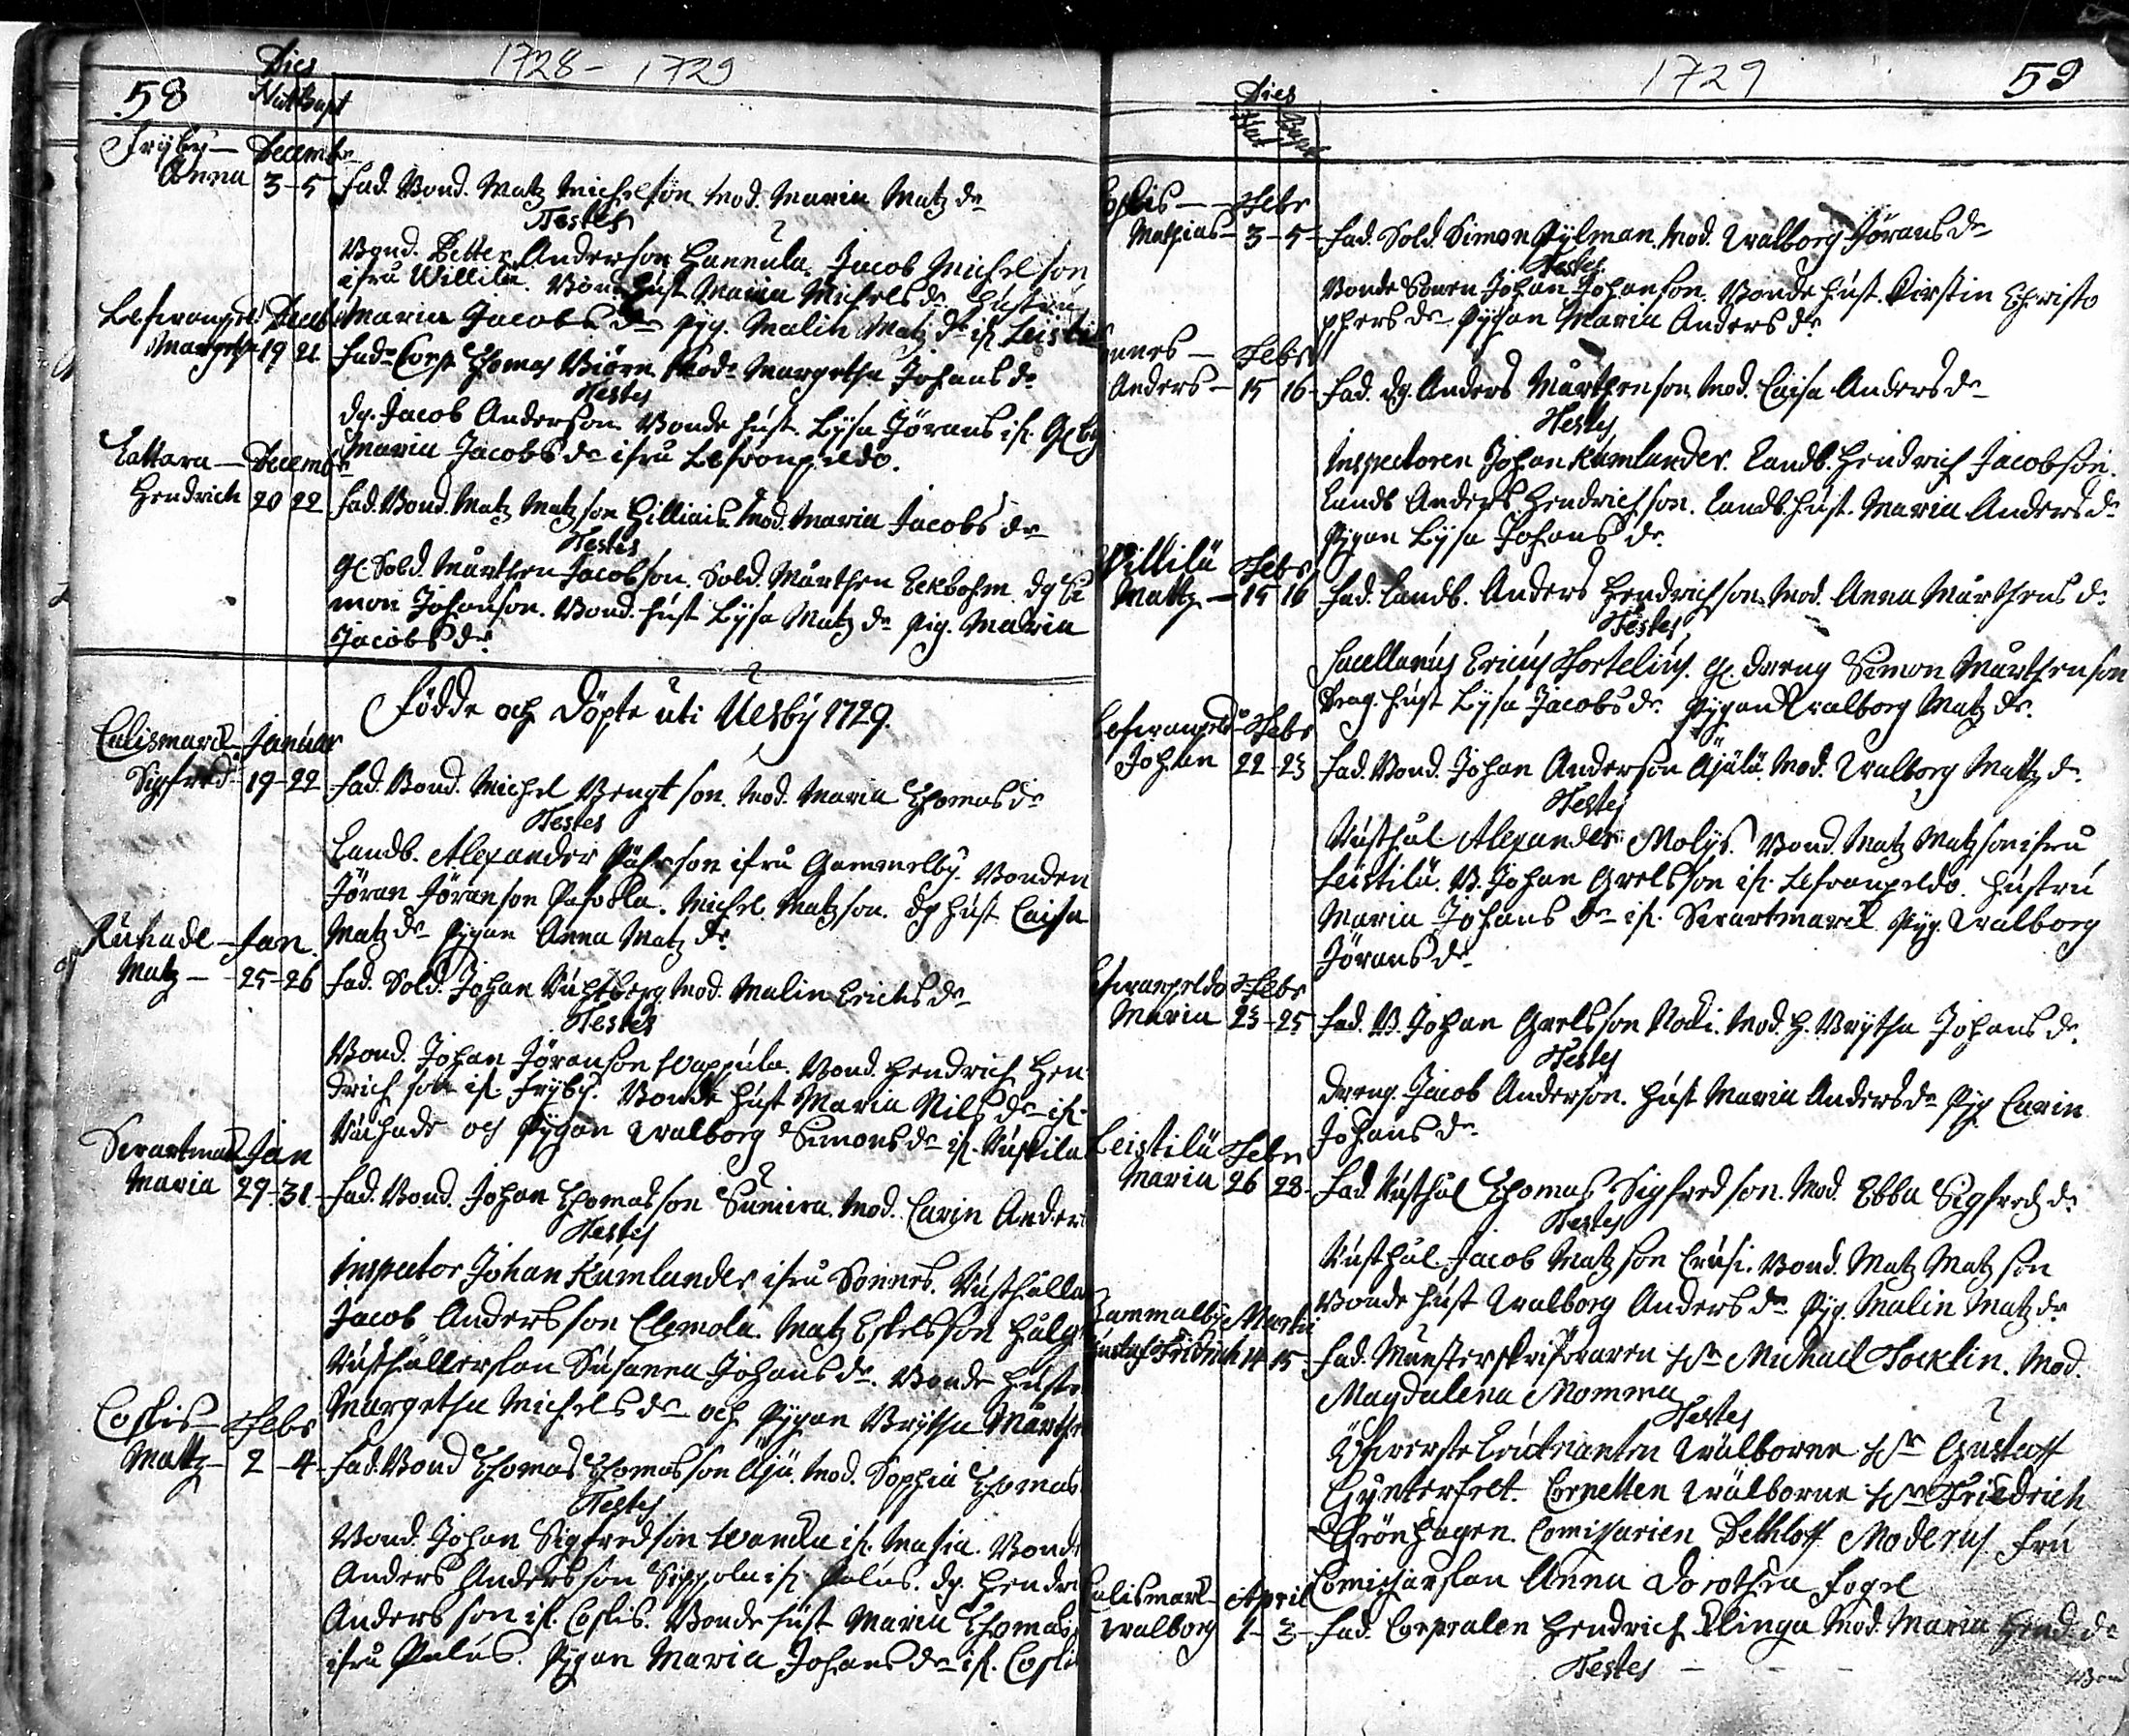 1728 - 1729
58
Dies
Nat Bapt
Fryby - Decembr
Anna 3 - 5 Fad. Bond. Matz Michelson Mod. Maria Matz dr
Testes
Bond. Petter Anderson Hannula. Jacob Michelson
ifrå Willilä. Bond hust Maria Michels dr. hustru
Maria Jacobs dr pyg. Malin Matz dr if. Leistilä
Decemb
Margetha 19 21 Fadr Corp Thomas Biörn Modr Margetha Johans dr
Testes
dg. Jacob Anderson Bonde hust. Lysa Jörans if.
Maria Jacobs dr ifrå
Lattara - Decembr
Hendrich 20 22 Fad. Bond. Matz Matzson Hilliais Mod. Maria Jacobs dr
Testes
Gl. Sold. Mårthen Jacobson. Sold. Mårthen Eckbohm dg Si
mon Johanson. Bond. hust Lysa Matz dr pig. Maria
Jacobs dr
Födde och Döpte uti Ulsby 1729.
Calismarck - Januar
Sigfred - 19 - 22 Fad. Bond. Michel Bengtson. Mod. Maria Thomas dr
Testes
Landb. Alexander Påhrson ifrå Gammelby. Bonden
Jöran Jöranson Pasocka. Michel Matzson. dg hust Caisa
Matz dr Pygan Anna Matz dr
Jan.
Matz - 25 - 26 Fad. Sold. Johan Mod. Malin Erichs dr
Testes
Bond. Johan Jöranson Wappula. Bond. Hendrich Hen
drichson if. Fryby. Bonde hust Maria Nils dr if.
och Pygan Walborg Simons dr if.
Swartmarck Jan
Maria 29 - 31 Fad. Bond. Johan Thomasson Sunicra. Mod. Carin Anders
Testes
Inspector Johan Kumlander ifrå Sonnes. Rusthålla
Jacob Andersson Clemola. Matz Eskelsson
Rusthållerskan Susanna Johans dr. Bonde hustr
Margetha Michels dr och Pygan Brytha Mårthe
Coskis - Febr
Mattz - 2 - 4 Fad. Bond Thomas Thomasson Äjä. Mod. Sophia Thomas
Testes
Bond. Johan Sigfredson Wancka if. Masia. Bond
Anders Andersson Sippola if. Palus. dg. Hendri
Andersson if. Coskis. Bonde hust Maria Thomas
ifrå Palus. Pygan Maria Johans dr if. Coski
1729
59
Dies
Nat Bapt
Coskis - Febr
Mathias - 3 - 5 - Fad. Sold. Simon Pylman. Mod. Walborg Jörans dr
Testes
Bonde Sonen Johan Johanson. Bonde hust. Kirstin Christo
phers dr Pygan Maria Anders dr
Febr
Anders - 15 16 - Fad. dg. Anders Mårthenson Mod. Caisa Anders dr
Testes
Inspectoren Johan Kumlander. Landb. Hendrich Jacobson.
Landb Anders Hendrichson. Landb. hust. Maria Anders dr
Pygan Lysa Johans dr.
Willilä Febr
Mattz - 15 16 Fad. Landb. Anders Hendrichson Mod. Anna Mårthens dr
Testes
Sacellanus Ericus Fortelius. Gl. dreng Simon Mårthenson
hust Lysa Jacobs dr. Pygan Walborg Matz dr.
Febr
Johan 22 - 23 Fad. Bond. Johan Anderson Äjälä. Mod. Walborg Mattz dr.
Testes
Rusthål. Alexander Molys. Bond. Matz Matzson ifrå
Leistilä. B. Johan Grelsson if. hustru
Maria Johans dr if. Swartmarck Pyg. Walborg
Jörans dr
Febr
Maria 23 - 25 Fad. B. Johan Grelsson Mod. H. Brytha Johans dr.
Testes
Dreng. Jacob Anderson. hust Maria Anders dr Pyg Carin
Johans dr
Leistilä Febr
Maria 26 28 Fad. Rusthål Thomas Sigfredson. Mod. Ebba Sigfredz dr
Testes
Rusthål. Jacob Matzson Crusi. Bond. Matz Matzson
Bonde hust Walborg Anders dr Pyg. Malin Matz dr
Gammalby Martii
Gustaf Fridrich 14 15 Fad. Munsterskrifvaren Hr Michael Tocklin. Mod.
Magdalena Momma
Testes
Öfwerste Leutnanten Wälborne Hr Gustaff
Gynterfelt. Cornetten Wälborne Hr Friedrich
Grönhagen. Comissarien Dethloff Moderus Fru
Comissarskan Anna Dorothea Fogel
Calismark April
Walborg 1 - 3 - Fad. Corporalen Hendrich Klinga Mod. Maria Hend. dr
Testes - - -
Bond